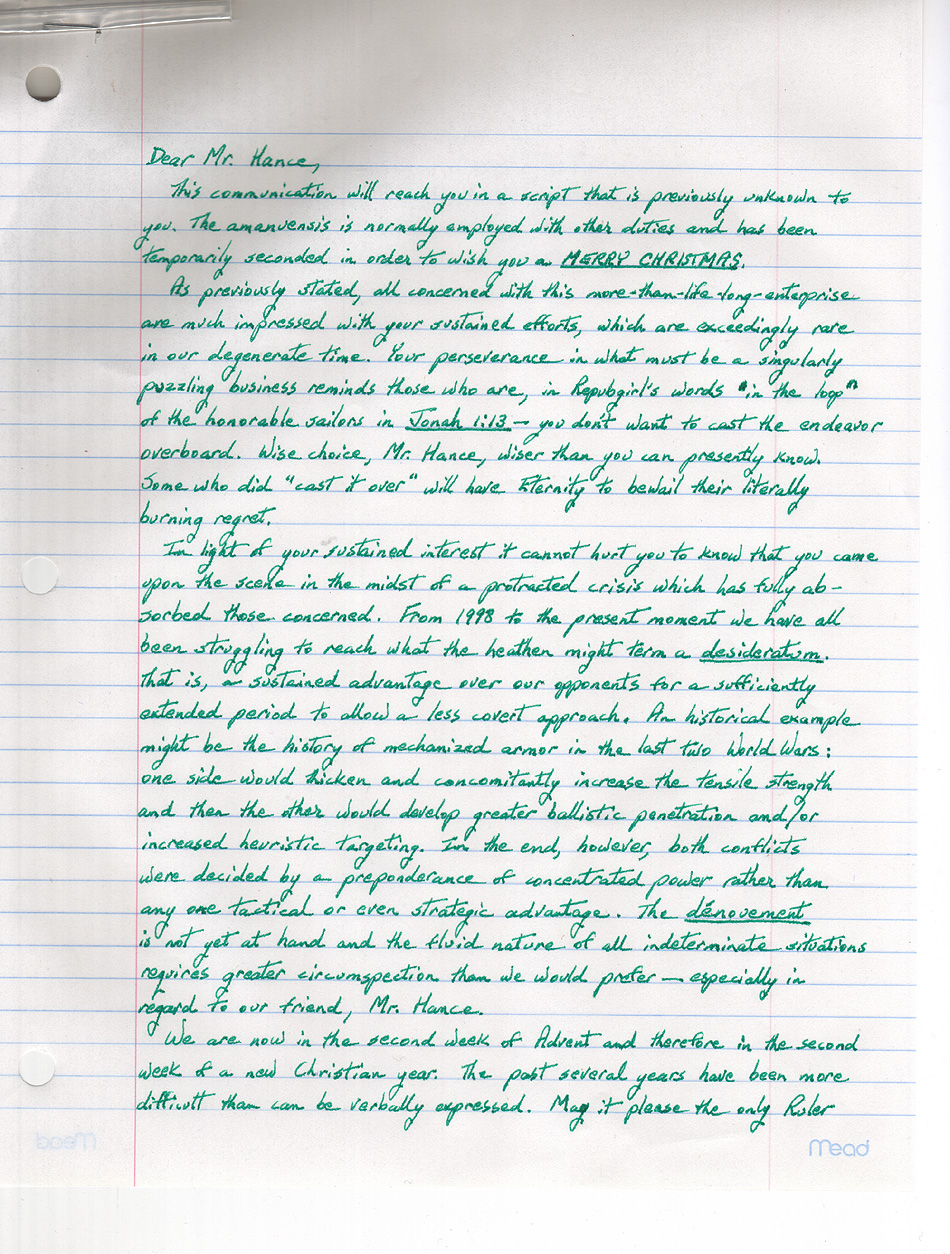 Dear Mr. Hance,
This communication will reach you in a script that is previously unknown to
you. The amanuensis is normally employed with other duties and has been
temporarily seconded in order to wish you a MERRY CHRISTMAS.
As previously stated, all concerned with this more-than-life-long-enterprise
are much impressed with your sustained efforts, which are exceedingly rare
in our degenerate time. Your perseverance in what must be a singularly
puzzling business reminds those who are, in Repubgirl's words "in the loop"
of the honorable sailors in Jonah 1:13 — you don't want to cast the endeavor
overboard. Wise choice, Mr. Hance, wiser than you can presently know.
Some who did "cast it over" will have Eternity to bewail their literally
burning regret.
In light of your sustained interest it cannot hurt you to know that you came
upon the scene in the midst of a protracted crisis which has fully ab-
sorbed those concerned. From 1998 to the present moment we have all
been struggling to reach what the heathen might term a desideratum.
That is, a sustained advantage over our opponents for a sufficiently
extended period to allow a less covert approach. An historical example
might be the history of mechanized armor in the last two World Wars:
one side would thicken and concomitantly increase the tensile strength
and then the other would develop greater ballistic penetration and/or
increased heuristic targeting. In the end, however, both conflicts
were decided by a preponderance of concentrated power rather than
any one tactical or even strategic advantage. The dénouement
is not yet at hand and the fluid nature of all indeterminate situations
requires greater circumspection than we would prefer — especially in
regard to our friend, Mr. Hance.
We are now in the second week of Advent and therefore in the second
week of a new Christian year. The past several years have been more
difficult than can be verbally expressed. May it please the only Ruler
Mead